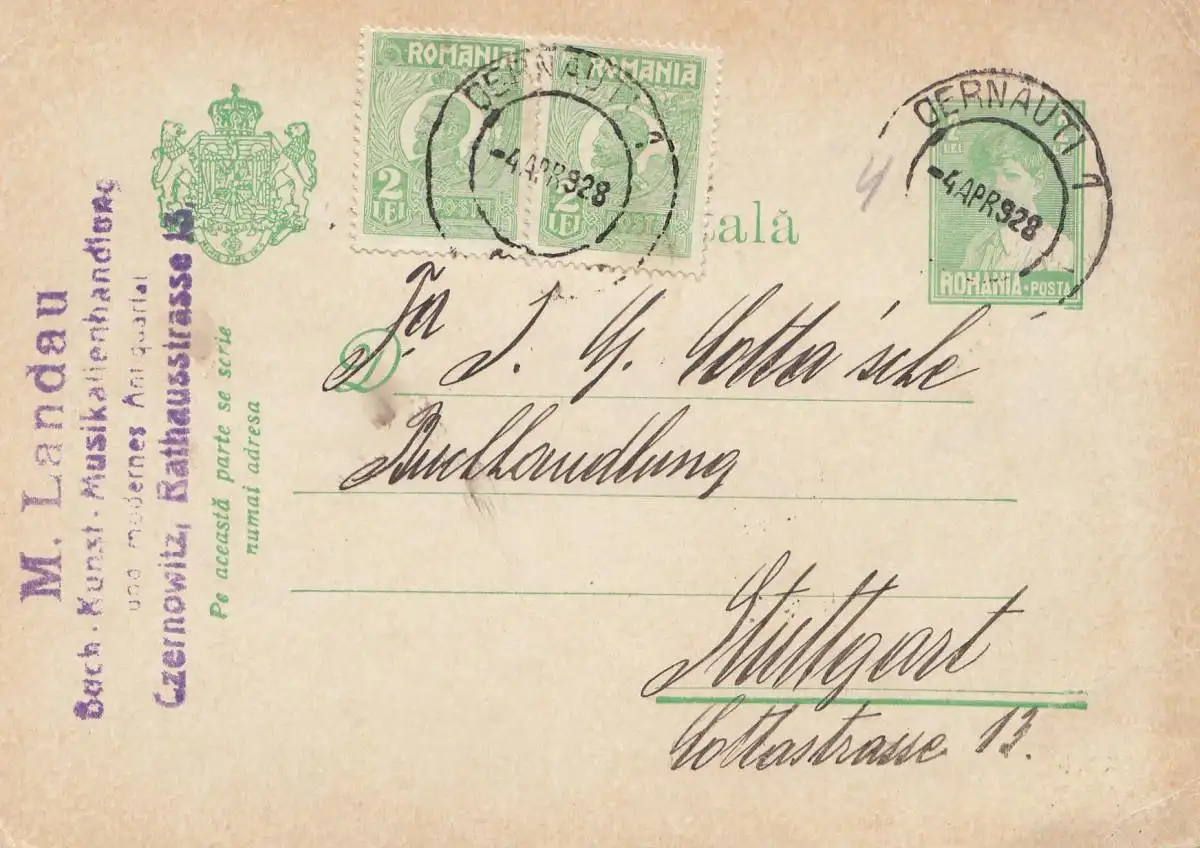 ROMANIA
2
LEI
POSTA
ROMANIA
2
LEI
POSTA
CERNĂUȚI 1
-4 APR 928
CERNĂUȚI 1
-4 APR 928
2
LEI
ROMANIA · POSTA
ală
4
M. Landau
Buch · Kunst · Musikalienhandlung
und modernes Antiquariat
Czernowitz, Rathausstrasse 13.
Pe această parte se scrie
numai adresa
D
Fa J. G. Cotta'sche
Buchhandlung
Stuttgart
Cottastrasse 13.